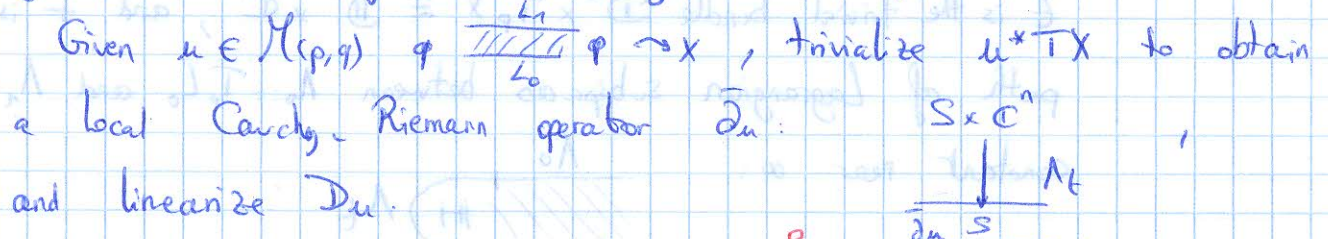 Given u ∈ M(p,q) q L₁ L₀ p → X , trivialize u*TX to obtain
a local Cauchy-Riemann operator ∂̄u: S × ℂⁿ ,
and linearize Du. ↓ Λt
∂u S